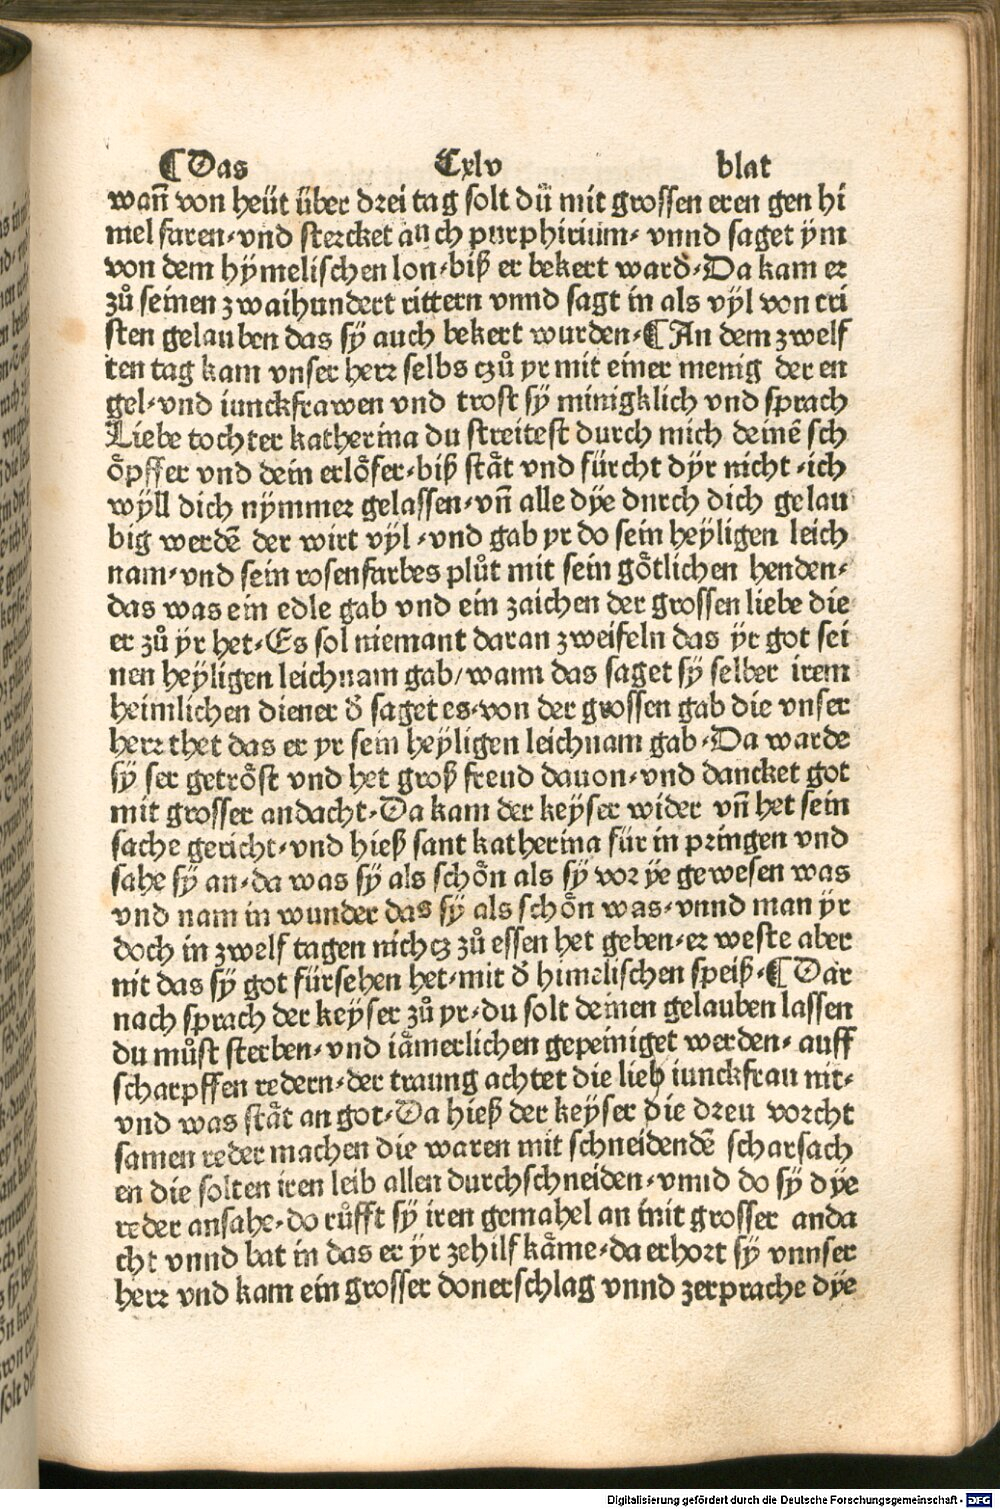 ¶ Das Cxlv blat
wañ von heüt über drei tag solt dü mit grossen eren gen hi
mel faren-vnd stercket auch purphirium- vnnd saget ym
von dem hymelischen lon-biß er bekert ward-Da kam er
zů seinen zwaihundert rittern vnnd sagt in als vyl von cri
sten gelauben das sy auch bekert wurden-¶ An dem zwelf
ten tag kam vnser herr selbs czů yr mit einer menig der en
gel-vnd iunckfrawen vnd trost sy minigklich vnd sprach
Liebe tochter katherina du streitest durch mich deinē sch
öpffer vnd dein erlöser-biß stät vnd fürcht dyr nicht-ich
wyll dich nymmer gelassen-vñ alle dye durch dich gelau
big werdē der wirt vyl-vnd gab yr do sein heyligen leich
nam-vnd sein rosenfarbes plůt mit sein götlichen henden-
das was ein edle gab vnd ein zaichen der grossen liebe die
er zů yr het-Es sol niemant daran zweifeln das yr got sei
nen heyligen leichnam gab/wann das saget sy selber irem
heimlichen diener d̄ saget es-von der grossen gab die vnser
herr thet das er yr sein heyligen leichnam gab-Da warde
sy ser getröst vnd het groß freud dauon-vnd dancket got
mit grosser andacht-Da kam der keyser wider vñ het sein
sache gericht-vnd hieß sant katherina für in pringen vnd
sahe sy an-da was sy als schön als sy vor ye gewesen was
vnd nam in wunder das sy als schön was-vnnd man yr
doch in zwelf tagen nichcz zů essen het geben-er weste aber
nit das sy got fürsehen het-mit d̄ himelischen speiß-¶ Dar
nach sprach der keyser zů yr-du solt deinen gelauben lassen
du můst sterben-vnd iämerlichen gepeiniget werden- auff
scharpffen redern-der traung achtet die lieb iunckfrau nit-
vnd was stät an got-Da hieß der keyser die dreu vorcht
samen reder machen die waren mit schneidendē scharsach
en die solten iren leib allen durchschneiden-vnnd do sy dye
reder ansahe-do růfft sy iren gemahel an mit grosser anda
cht vnnd bat in das er yr zehilf käme-da erhort sy vnnser
herr vnd kam ein grosser donerschlag vnnd zerprache dye
Digitalisierung gefördert durch die Deutsche Forschungsgemeinschaft - DFG